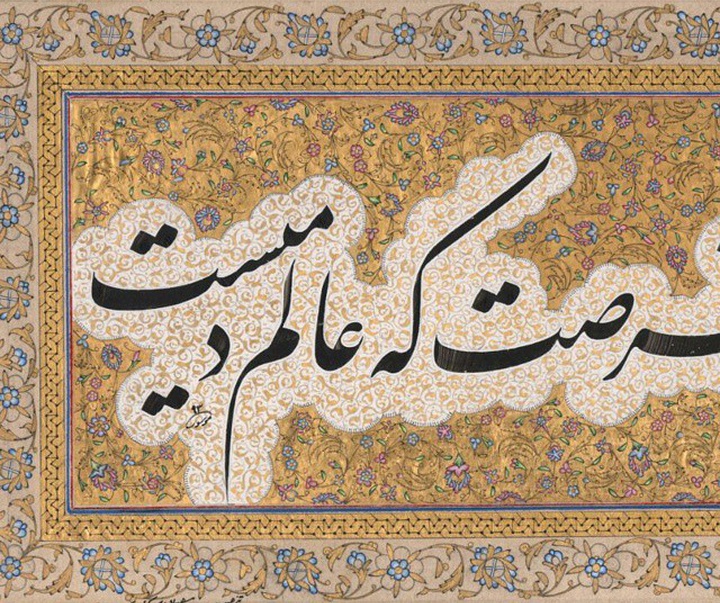 فرصت که عالم دمیست